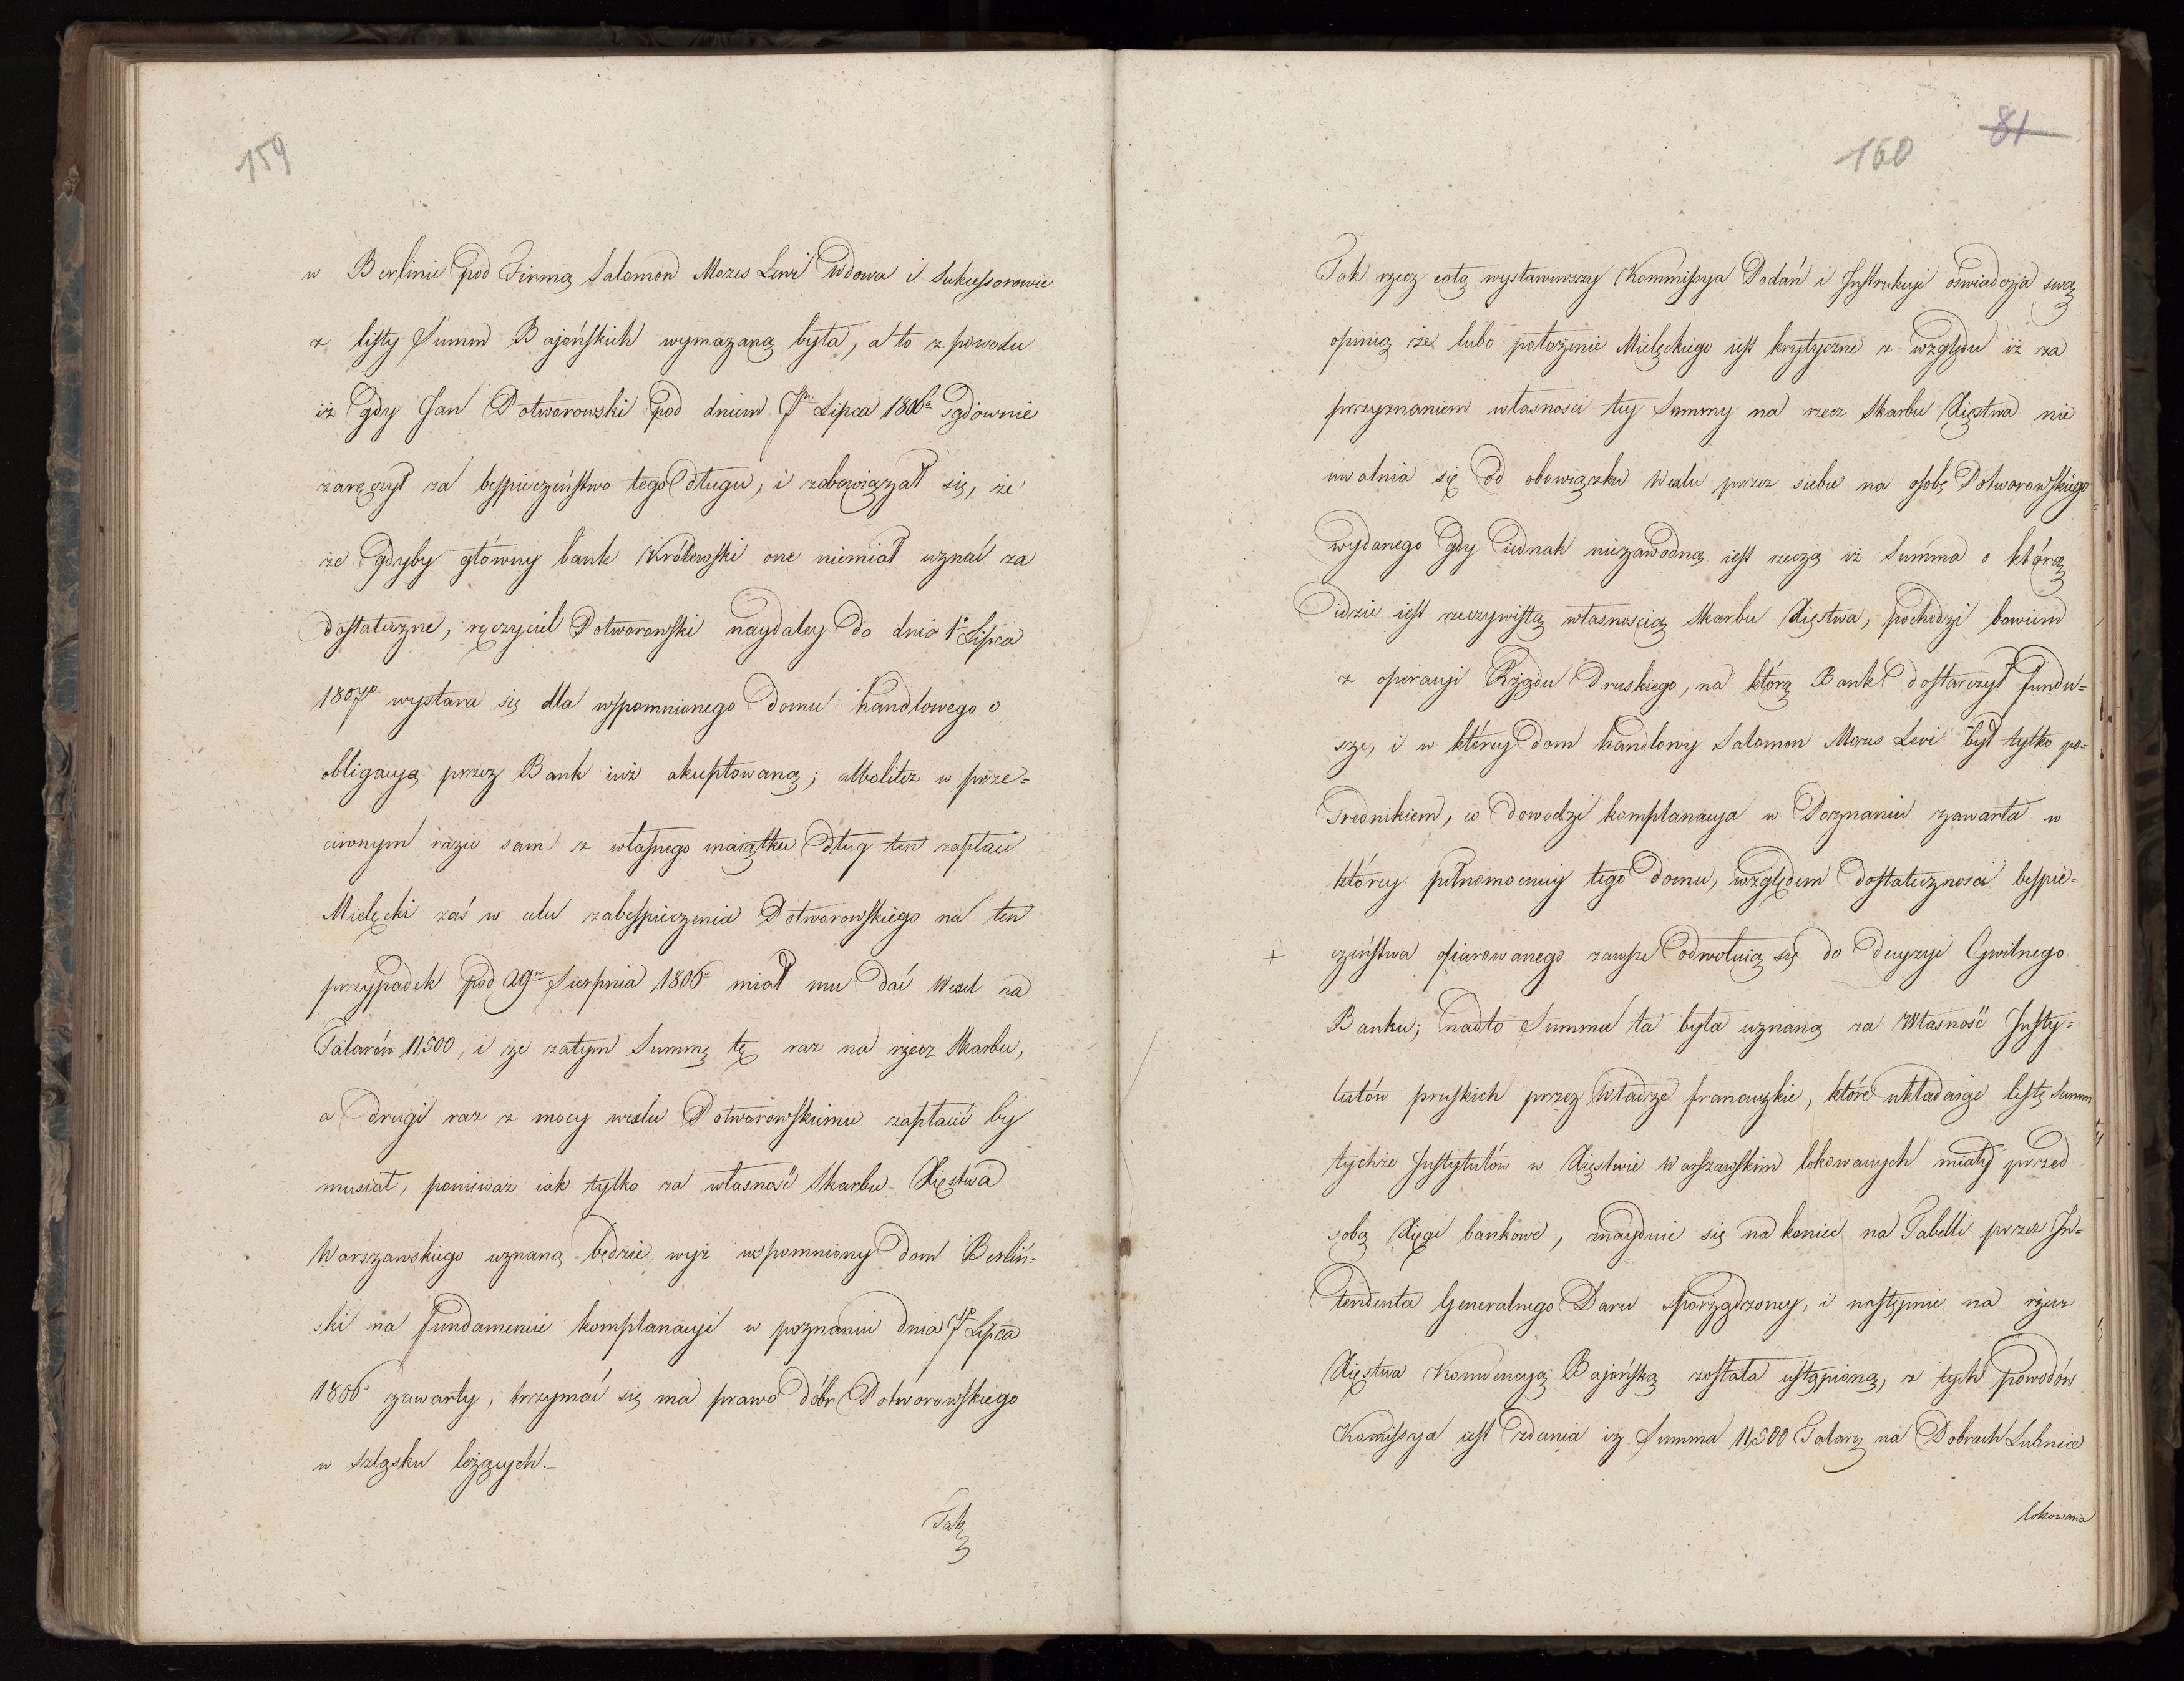 159
w Berlinie pod Firmą Salomon Mozes Lewi Wdowa i Sukcessorowie
z listy Summ Bajońskich wymazaną była, a to z powodu
iż gdy Jan Potworowski pod dniem 7m Lipca 1806r sądownie
zaręczył za bespieczeństwo tego długu, i zobowiązał się, że
że gdyby główny bank Krolewski one niemiał uznać za
dostateczne, ręczyciel Potworowski naydaley do dnia 1o Lipca
1807o wystara się dla wspomnionego domu handlowego o
obligacyą przez Bank iuż akceptowaną; albolitez w prze=
ciwnym razie sam z własnego maiątku dług ten zapłaci
Mielęcki zaś w celu zabespieczenia Potworowskiego na ten
przypadek pod 29m Sierpnia 1806r miał mu dać Wexel na
Talarów 11,500, i że zatym Summę tę raz na rzecz Skarbu,
a drugi raz z mocy wexlu Potworowskiemu zapłacić by
musiał, ponieważ iak tylko za własność Skarbu Xięstwa
Warszawskiego uznaną będzie, wyż wspomniony dom Berliń=
ski na fundamencie komplanacyi w poznaniu dnia 7o Lipca
1806 zawarty, trzymać się ma prawo dóbr Potworowskiego
w Szląsku leżących.–
Tak
160
81
Tak rzecz całą wystawiwszy Kommissya Podań i Instrukcyi oświadcza swą
opinią że lubo położenie Mielęckiego iest krytyczne z względu iż za
przyznaniem własności tey Summy na rzecz Skarbu Xięstwa nie
uwalnia się od obowiązku Wexlu przez siebie na osobę Potworowskiego
wydanego gdy iednak niezawodną iest rzeczą iż Summa o którą
idzie iest rzeczywistą własnością Skarbu Xięstwa, pochodzi bowiem
z operacyi Rządu Pruskiego, na którą Bank dostarczył fundu=
sze, i w którey dom handlowy Salomon Mozes Levi był tylko po=
średnikiem, co dowodzi komplanacya w Poznaniu zawarta w
którey pełnomocnicy tego domu, względem dostateczności bespie=
+ czeństwa ofiarowanego zawsze odwołuią się do decyzyi Głownego
Banku; nadto Summa ta była uznaną za Własność Insty=
tutów pruskich przez Władze francuzkie, które układaiąc listę Summ
tychże Instytutów w Xięstwie Warszawskim lokowanych miały przed
sobą Xięgi bankowe, znayduie się na koniec na Tabelli przez In=
tendenta Generalnego Daru sporządzoney, i następnie na rzecz
Xięstwa Konwencyą Bajońską została ustąpioną, z tych powodów
Komissya iest zdania iż Summa 11,500 Talarą na Dobrach Łubnice
lokowana